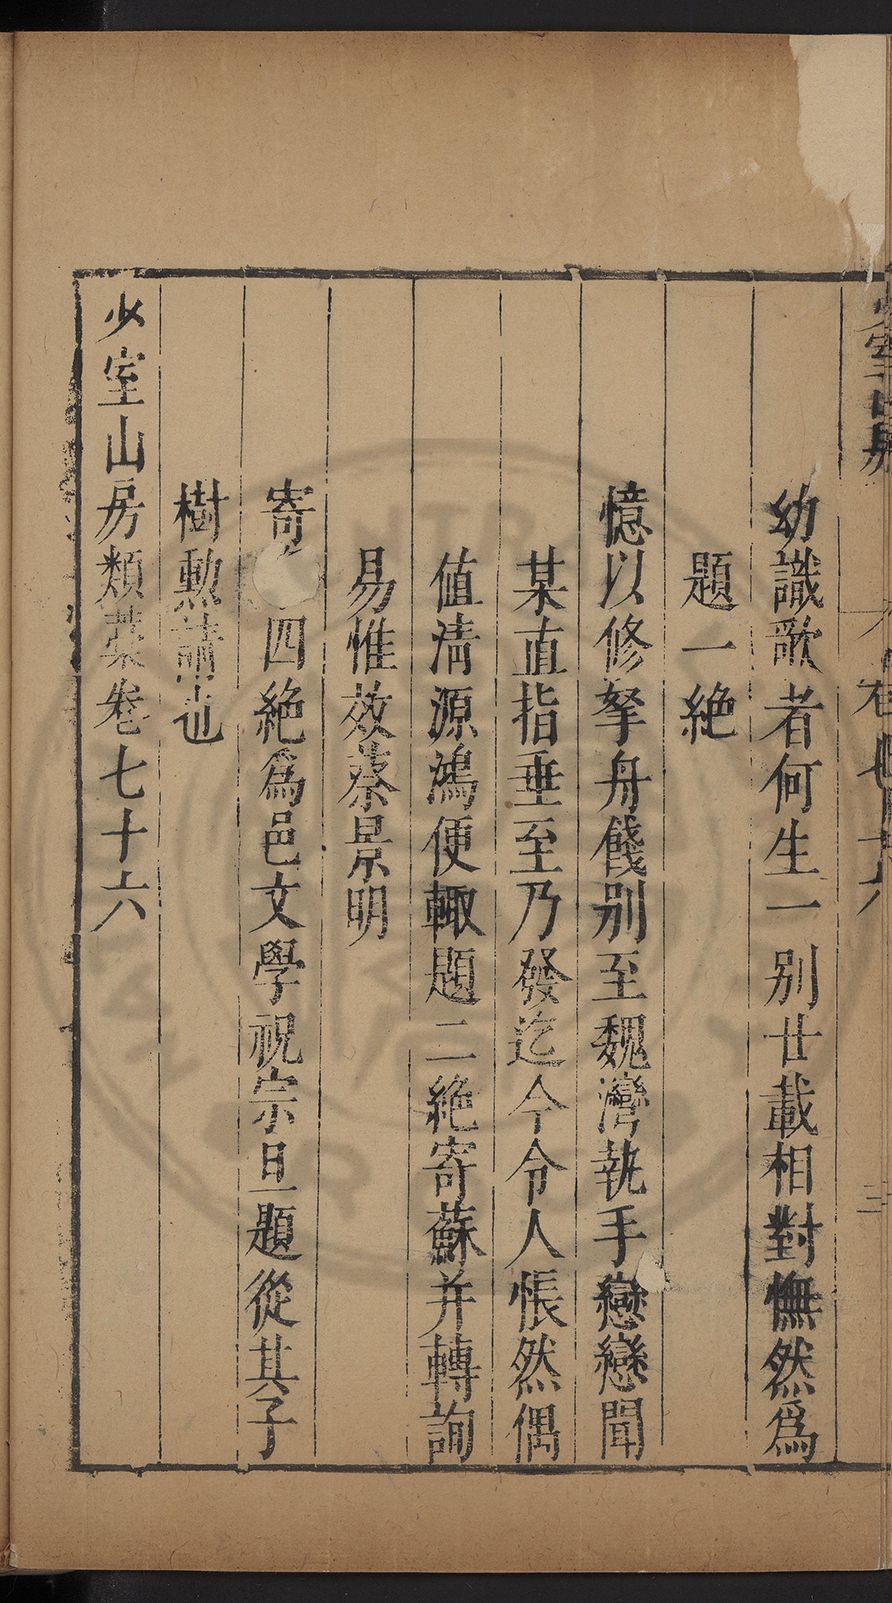 幼識歌者何生一别廿載相對憮然爲
題一絶
憶以修拏舟餞别至魏灣執手戀戀聞
某直指垂至乃發迄今令人悵然偶
值淸源鴻便輙題二絶寄蘇并轉詢
易惟效蔡景明
寄 四絶爲邑文學祝宗旦題從其子
樹勲請也
少室山房類藁卷七十六